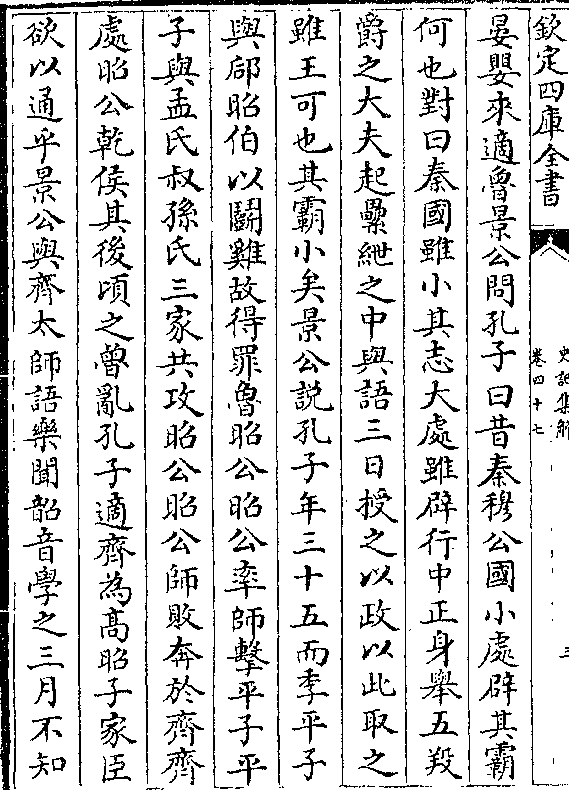 欽定四庫全書
史記集解
卷四十七
三
晏嬰來適魯景公問孔子曰昔秦穆公國小處辟其霸
何也對曰秦國雖小其志大處雖辟行中正身舉五羖
爵之大夫起纍紲之中與語三日授之以政以此取之
雖王可也其霸小矣景公說孔子年三十五而季平子
與郈昭伯以鬭雞故得罪魯昭公昭公率師擊平子平
子與孟氏叔孫氏三家共攻昭公昭公師敗奔於齊齊
處昭公乾侯其後頃之魯亂孔子適齊為高昭子家臣
欲以通乎景公與齊太師語樂聞韶音學之三月不知